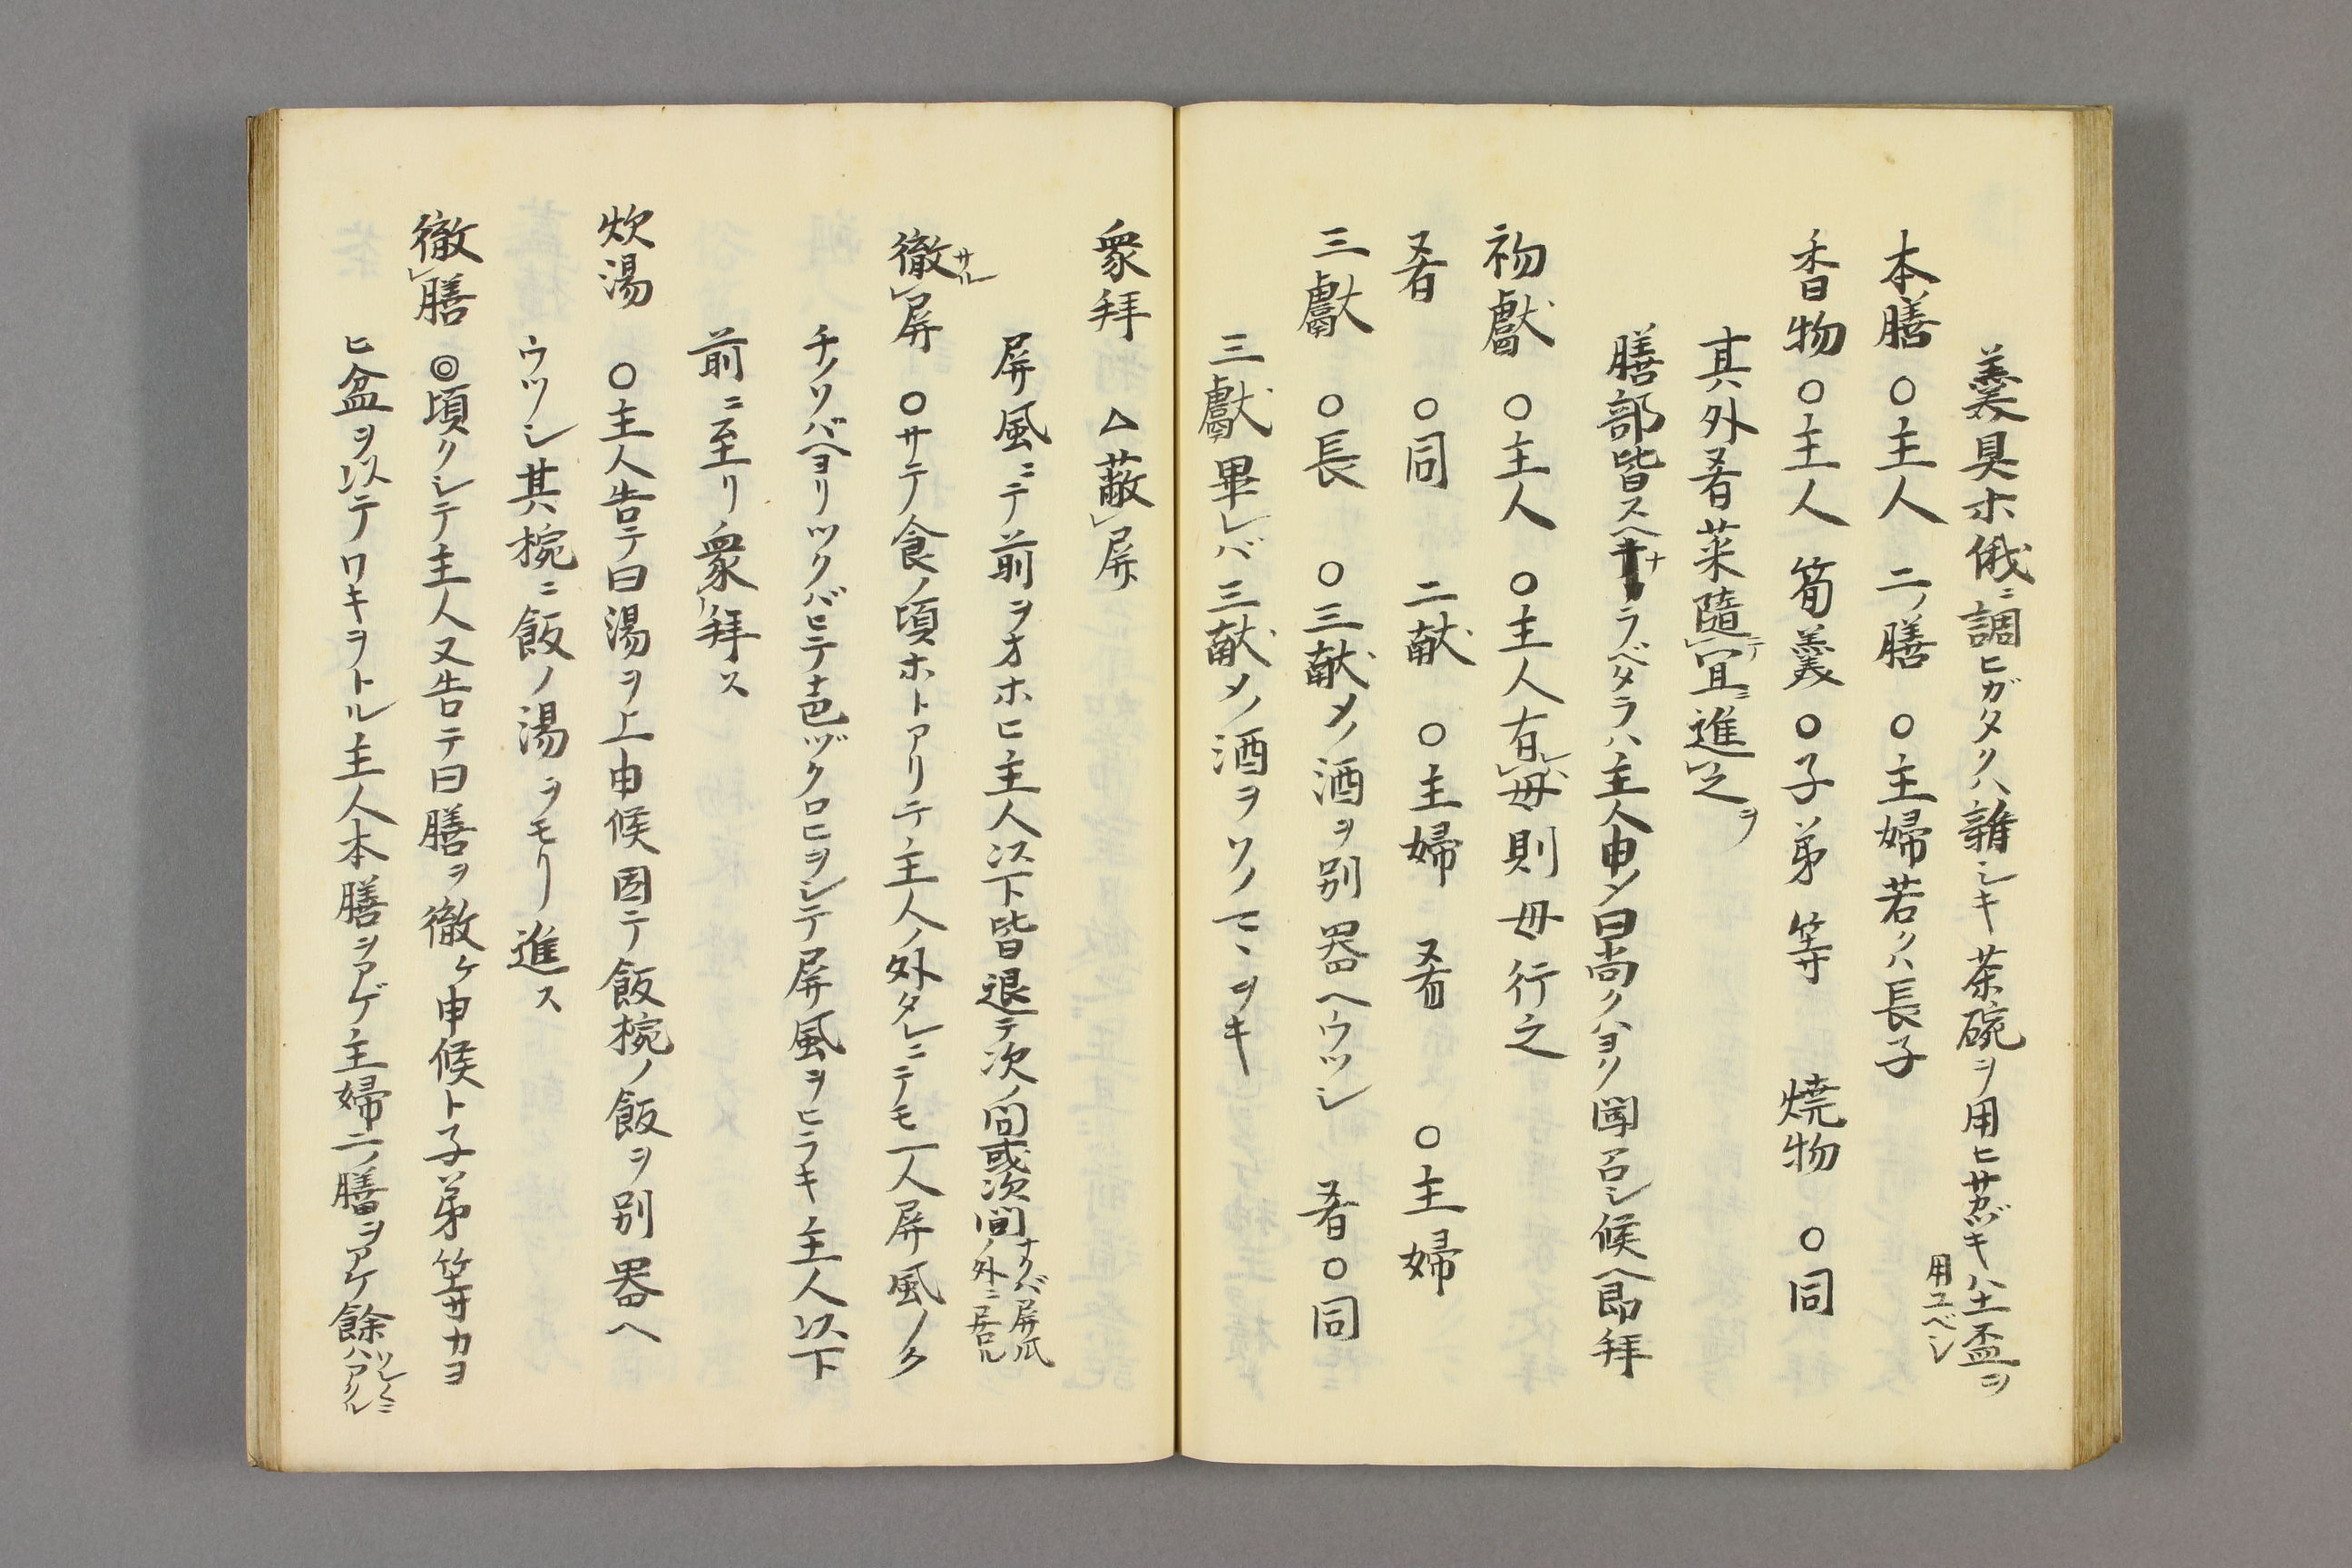 羹具ホ俄ニ調ヒガタクハ雜シキ茶碗ヲ用ヒサカヅキハ土盃ヲ
用ユベシ
本膳 〇主人 二ノ膳 〇主婦若クハ長子
香物〇主人 筍羹〇子弟等 焼物 〇同
其外肴菜隨テ宜ニ進之ヲ
膳部皆スヘナラベタラハ主人申ノ曰尚クハヨリ候ヘ即拜
初獻 〇主人 〇主人有レバ母則母行之
肴 〇同 二献 〇主婦ニ 肴 〇主婦
三獻 〇長 〇三献メノ酒ヲ別器ヘウツシ 肴〇同
三獻畢レバ三献メノ酒ヲソノマヽヲキ
衆拜 △蔽屏
屏風ニテ前ヲオホヒ主人以下皆退テ次ノ間或次間
ナクバ屏風
ノ外ニ居ル
徹サル屏 〇サテ食ノ頃ホトアリテ主人ノ外タレニテモ一人屏風ノク
チノソバヘヨリツクバヒテ声ヅクロヒヲシテ屏風ヲヒラキ主人以下
前ニ至リ衆拜ス
炊湯 〇主人告テ曰湯ヲ上申候因テ飯椀ノ飯ヲ別器ヘ
ウツシ其椀ニ飯ノ湯ヲモリ進ス
徹膳 ◎頃クシテ主人又告テ曰膳ヲ徹ケ申候ト子弟等サカヨ
ヒ盆ヲ以テワキヲトル主人本膳ヲアゲ主婦二ノ膳ヲアケ餘ハ